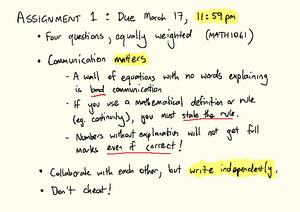 ASSIGNMENT 1 : Due March 17, 11:59pm
• Four questions, equally weighted (MATH1061)
• Communication matters
- A wall of equations with no words explaining
is bad communication
- If you use a mathematical definition or rule
(eg. continuity), you must state the rule.
- Numbers without explanation will not get full
marks even if correct!
• Collaborate with each other, but write independently.
• Don't cheat!